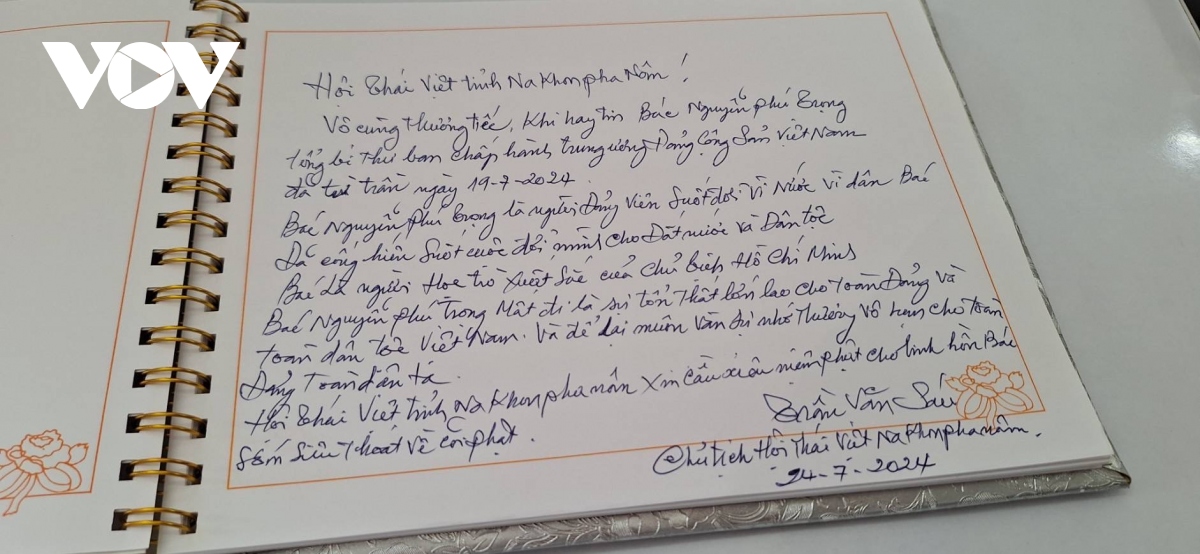 VOV
Hội Thái Việt tỉnh Na Khon pha Nôm!
Vô cùng thương tiếc, Khi hay tin Bác Nguyễn phú Trọng
tổng bí thư ban chấp hành trung ương Đảng Cộng Sản Việt Nam
đã từ trần ngày 19-7-2024.
Bác Nguyễn Phú Trọng là người Đảng Viên Suốt đời Vì Nước Vì dân Bác
Đã cống hiến Suốt cuộc đời mình cho Đất nước và Dân tộc
Bác Là người Học trò Xuất Sắc của Chủ tịch Hồ Chí Minh
Bác Nguyễn Phú Trọng Mất đi là sự tổn thất lớn lao cho Toàn Đảng Và
toàn dân tộc Việt Nam. Và để lại muôn Vàn sự nhớ Thương Vô hạn cho toàn
Đảng Toàn dân ta.
Hội Thái Việt tỉnh Na Khon pha nôm Xin cầu niệm phật cho linh hồn Bác
Sớm Siêu Thoát Về cõi phật.
Trần Văn Sáu
Chủ tịch Hội Thái Việt Na Khon pha nôm.
24-7-2024